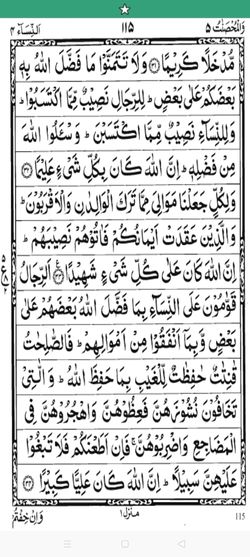 وَالْمُحْصَنٰتُ ٥ ١١٥ اَلنِّسَآء ٤
مُّدْخَلًا كَرِيْمًا ﴿٣١﴾ وَلَا تَتَمَنَّوْا مَا فَضَّلَ اللّٰهُ بِهٖ
بَعْضَكُمْ عَلٰى بَعْضٍ ؕ لِلرِّجَالِ نَصِيْبٌ مِّمَّا اكْتَسَبُوْا ؕ
وَلِلنِّسَآءِ نَصِيْبٌ مِّمَّا اكْتَسَبْنَ ؕ وَسْـَٔلُوا اللّٰهَ
مِنْ فَضْلِهٖ ؕ اِنَّ اللّٰهَ كَانَ بِكُلِّ شَيْءٍ عَلِيْمًا ﴿٣٢﴾
وَلِكُلٍّ جَعَلْنَا مَوَالِيَ مِمَّا تَرَكَ الْوَالِدٰنِ وَالْاَقْرَبُوْنَ ؕ
وَالَّذِيْنَ عَقَدَتْ اَيْمَانُكُمْ فَاٰتُوْهُمْ نَصِيْبَهُمْ ؕ
اِنَّ اللّٰهَ كَانَ عَلٰى كُلِّ شَيْءٍ شَهِيْدًا ﴿٣٣﴾ اَلرِّجَالُ
قَوّٰمُوْنَ عَلَى النِّسَآءِ بِمَا فَضَّلَ اللّٰهُ بَعْضَهُمْ عَلٰى
بَعْضٍ وَّبِمَآ اَنْفَقُوْا مِنْ اَمْوَالِهِمْ ؕ فَالصّٰلِحٰتُ
قٰنِتٰتٌ حٰفِظٰتٌ لِّلْغَيْبِ بِمَا حَفِظَ اللّٰهُ ؕ وَالّٰتِيْ
تَخَافُوْنَ نُشُوْزَهُنَّ فَعِظُوْهُنَّ وَاهْجُرُوْهُنَّ فِي
الْمَضَاجِعِ وَاضْرِبُوْهُنَّ ۚ فَاِنْ اَطَعْنَكُمْ فَلَا تَبْغُوْا
عَلَيْهِنَّ سَبِيْلًا ؕ اِنَّ اللّٰهَ كَانَ عَلِيًّا كَبِيْرًا ﴿٣٤﴾
وَاِنْ خِفْتُمْ منزل ١ 115